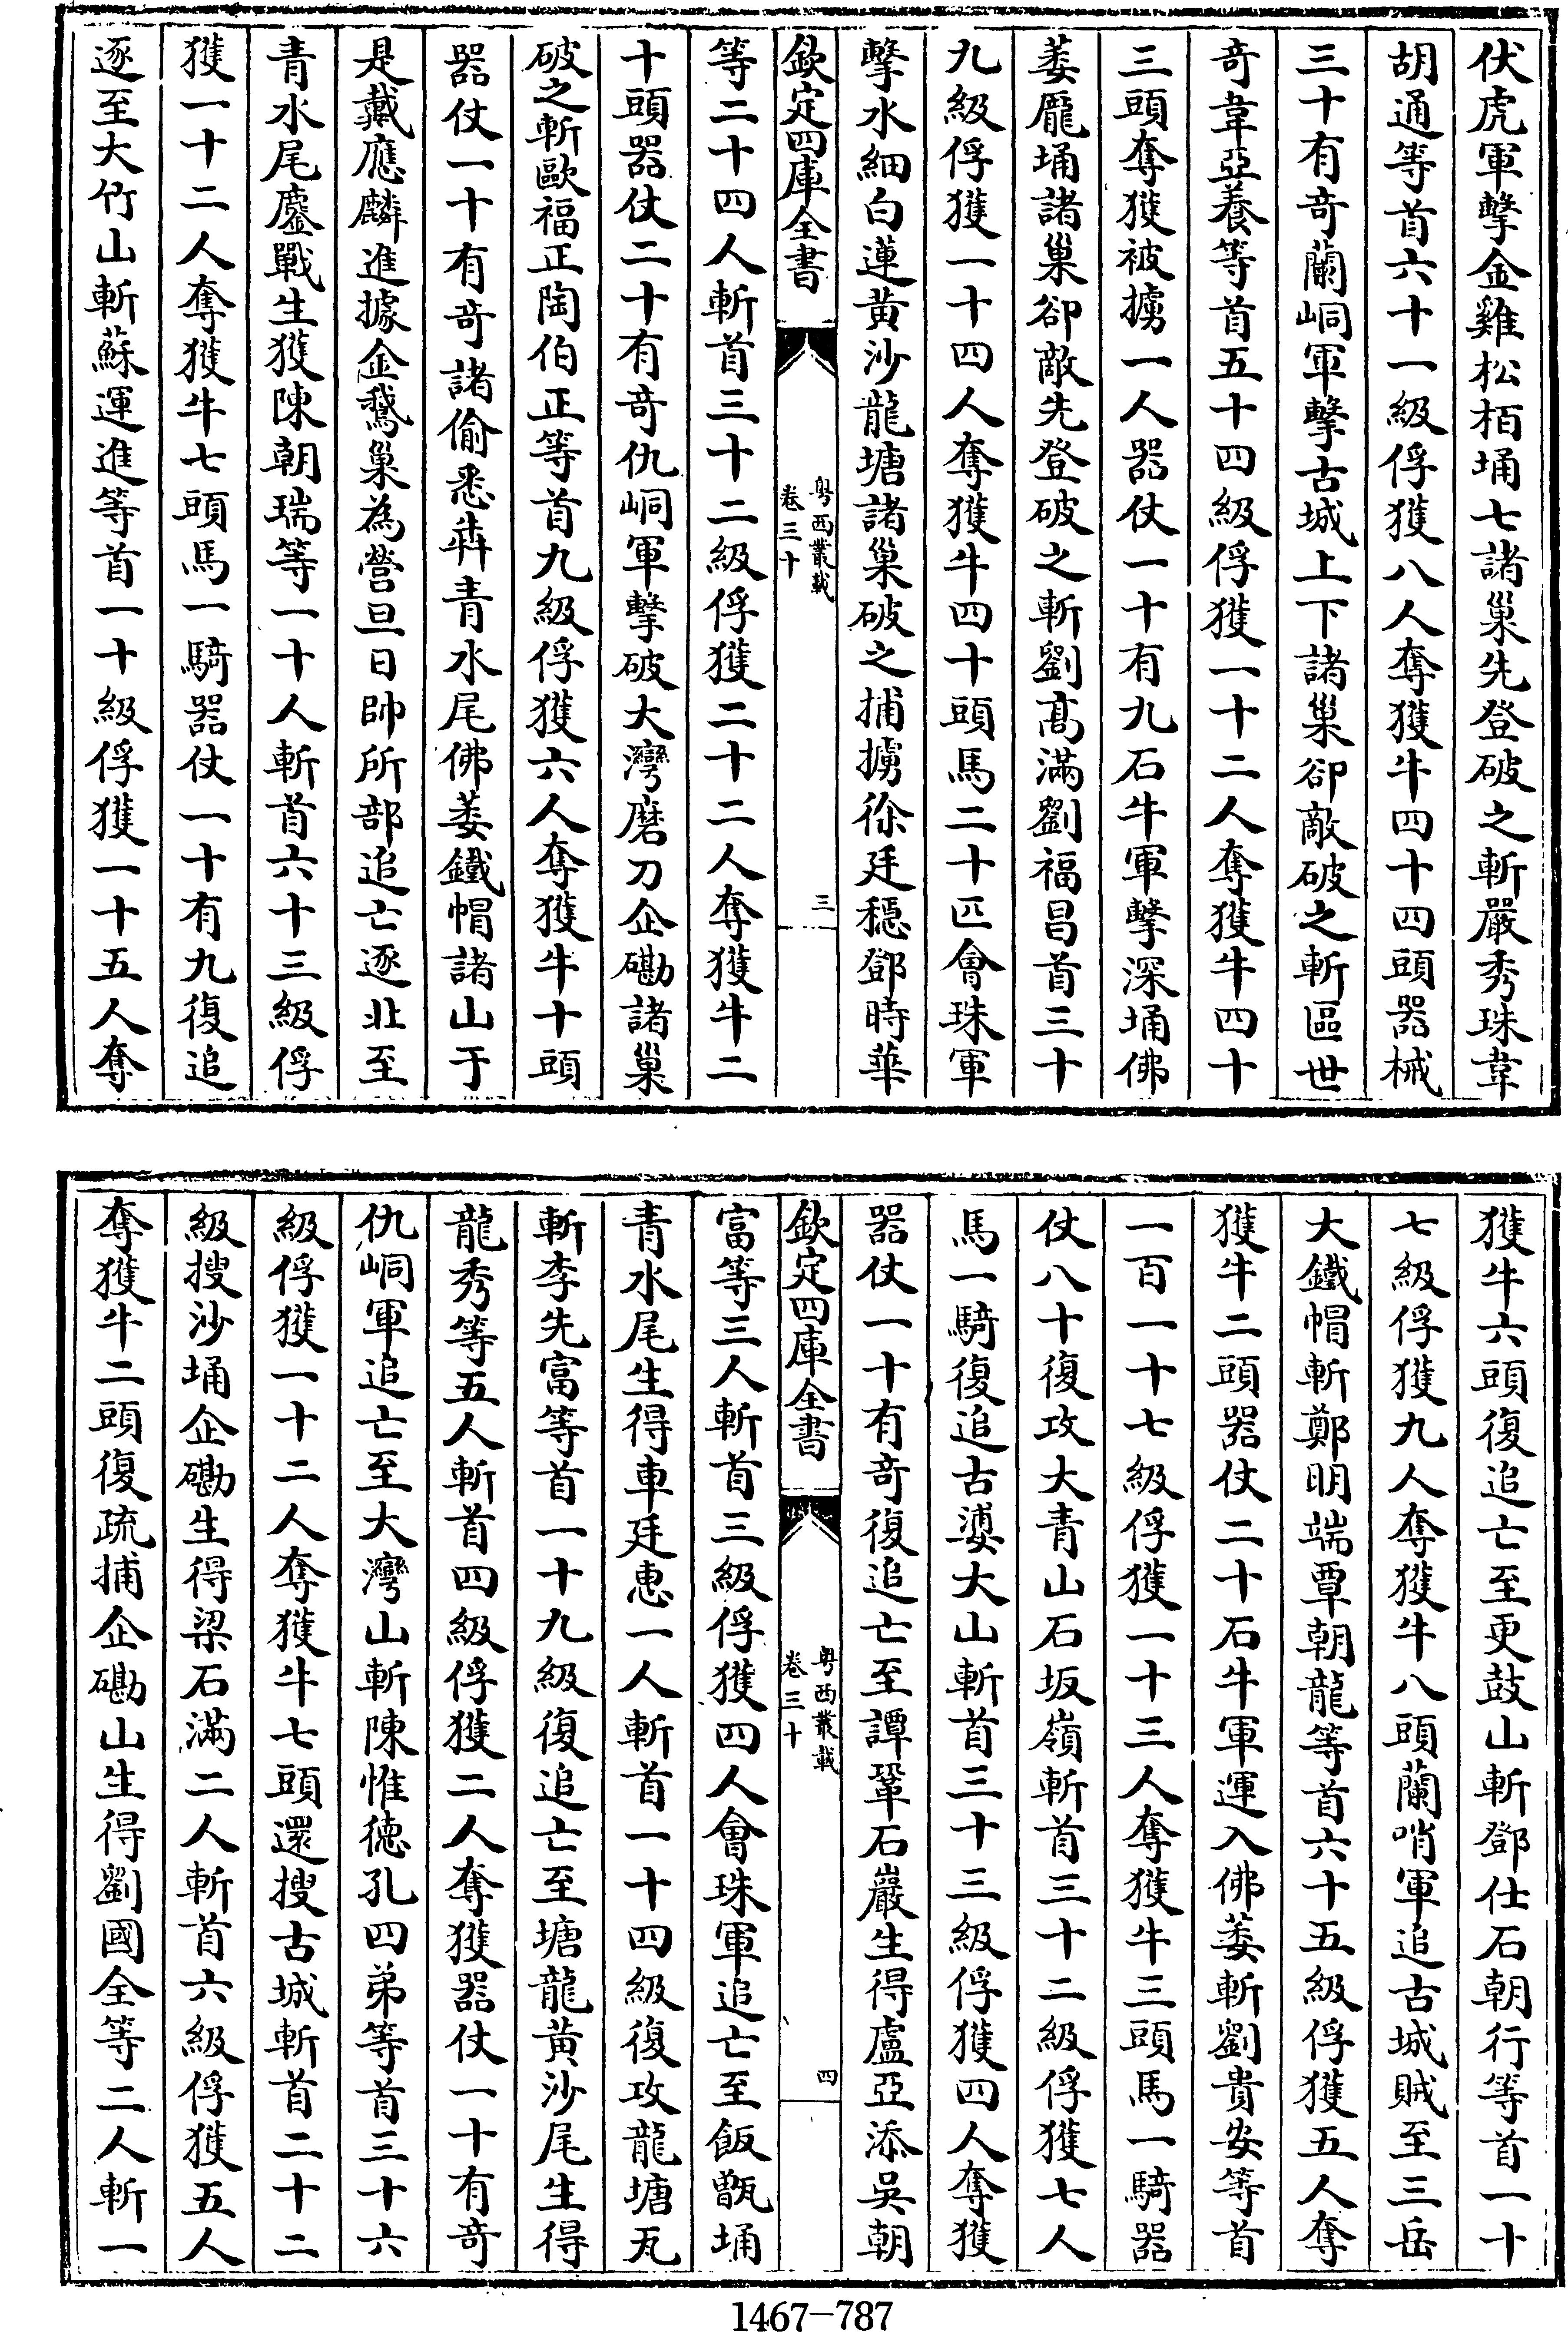 伏虎軍擊金雞松栢埇七諸巢先登破之斬嚴秀珠韋
胡通等首六十一級俘獲八人奪獲牛四十四頭器械
三十有奇蘭峒軍擊古城上下諸巢卻敵破之斬區世
奇韋亞養等首五十四級俘獲一十二人奪獲牛四十
三頭奪獲被擄一人器仗一十有九石牛軍擊深埇佛
蒌龎埇諸巢卻敵先登破之斬劉髙滿劉福昌首三十
九級俘獲一十四人奪獲牛四十頭馬二十匹會珠軍
擊水細白蓮黃沙龍塘諸巢破之捕擄徐廷穩鄧時華
欽定四庫全書
粤西叢載
卷三十
三
等二十四人斬首三十二級俘獲二十二人奪獲牛二
十頭器仗二十有奇仇峒軍擊破大灣磨刀企磡諸巢
破之斬歐福正陶伯正等首九級俘獲六人奪獲牛十頭
器仗一十有奇諸偷悉犇青水尾佛蒌鐵帽諸山于
是戴應麟進據金鵞巢為營旦日帥所部追亡逐北至
青水尾鏖戰生獲陳朝瑞等一十人斬首六十三級俘
獲一十二人奪獲牛七頭馬一騎器仗一十有九復追
逐至大竹山斬蘇運進等首一十級俘獲一十五人奪
獲牛六頭復追亡至更鼓山斬鄧仕石朝行等首一十
七級俘獲九人奪獲牛八頭蘭哨軍追古城賊至三岳
大鐵帽斬鄭明端覃朝龍等首六十五級俘獲五人奪
獲牛二頭器仗二十石牛軍運入佛蒌斬劉貴安等首
一百一十七級俘獲一十三人奪獲牛三頭馬一騎器
仗八十復攻大青山石坂嶺斬首三十二級俘獲七人
馬一騎復追古婆大山斬首三十三級俘獲四人奪獲
器仗一十有奇復追亡至譚鞏石巖生得盧亞添吳朝
欽定四庫全書
粤西叢載
卷三十
四
富等三人斬首三級俘獲四人會珠軍追亡至飯甑埇
青水尾生得車廷惠一人斬首一十四級復攻龍塘𤓰
斬李先富等首一十九級復追亡至塘龍黃沙尾生得
龍秀等五人斬首四級俘獲二人奪獲器仗一十有奇
仇峒軍追亡至大灣山斬陳惟德孔四弟等首三十六
級俘獲一十二人奪獲牛七頭還搜古城斬首二十二
級搜沙埇企磡生得梁石滿二人斬首六級俘獲五人
奪獲牛二頭復疏捕企磡山生得劉國全等二人斬一
1467-787